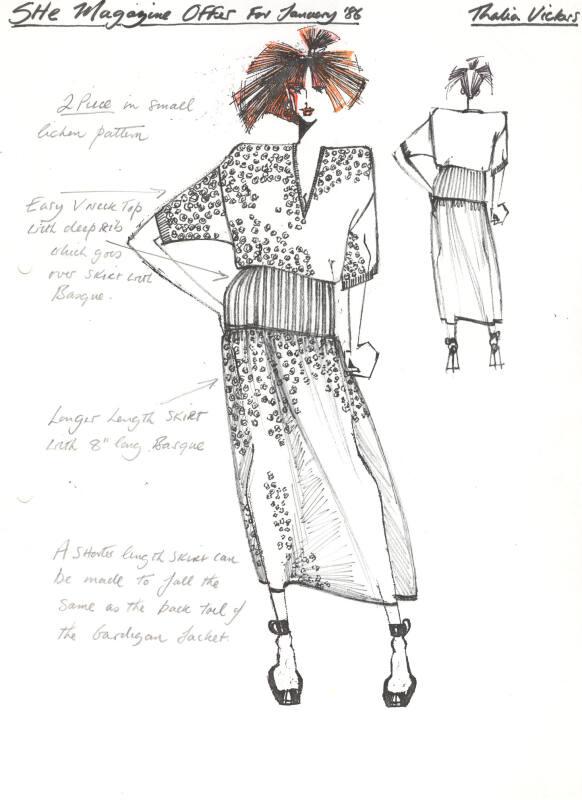 SHe Magazine Offer For January '86
Thalia Vickers
2 Piece in small
lichen pattern
Easy V neck Top
with deep rib
which goes
over skirt with
Basque.
Longer length skirt
with 8" long Basque
A shorter length skirt can
be made to fall the
same as the back tail of
the Cardigan Jacket.